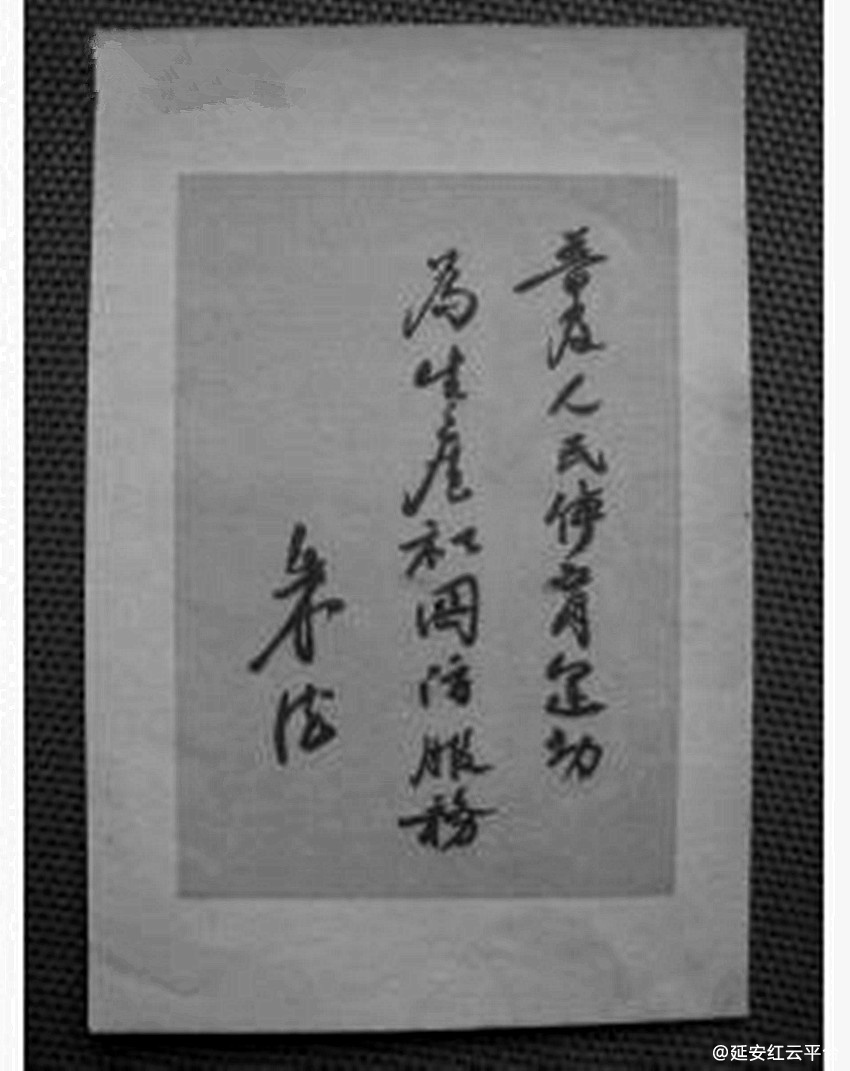 普及人民体育运动
為生產和国防服務
朱德
@延安红云平